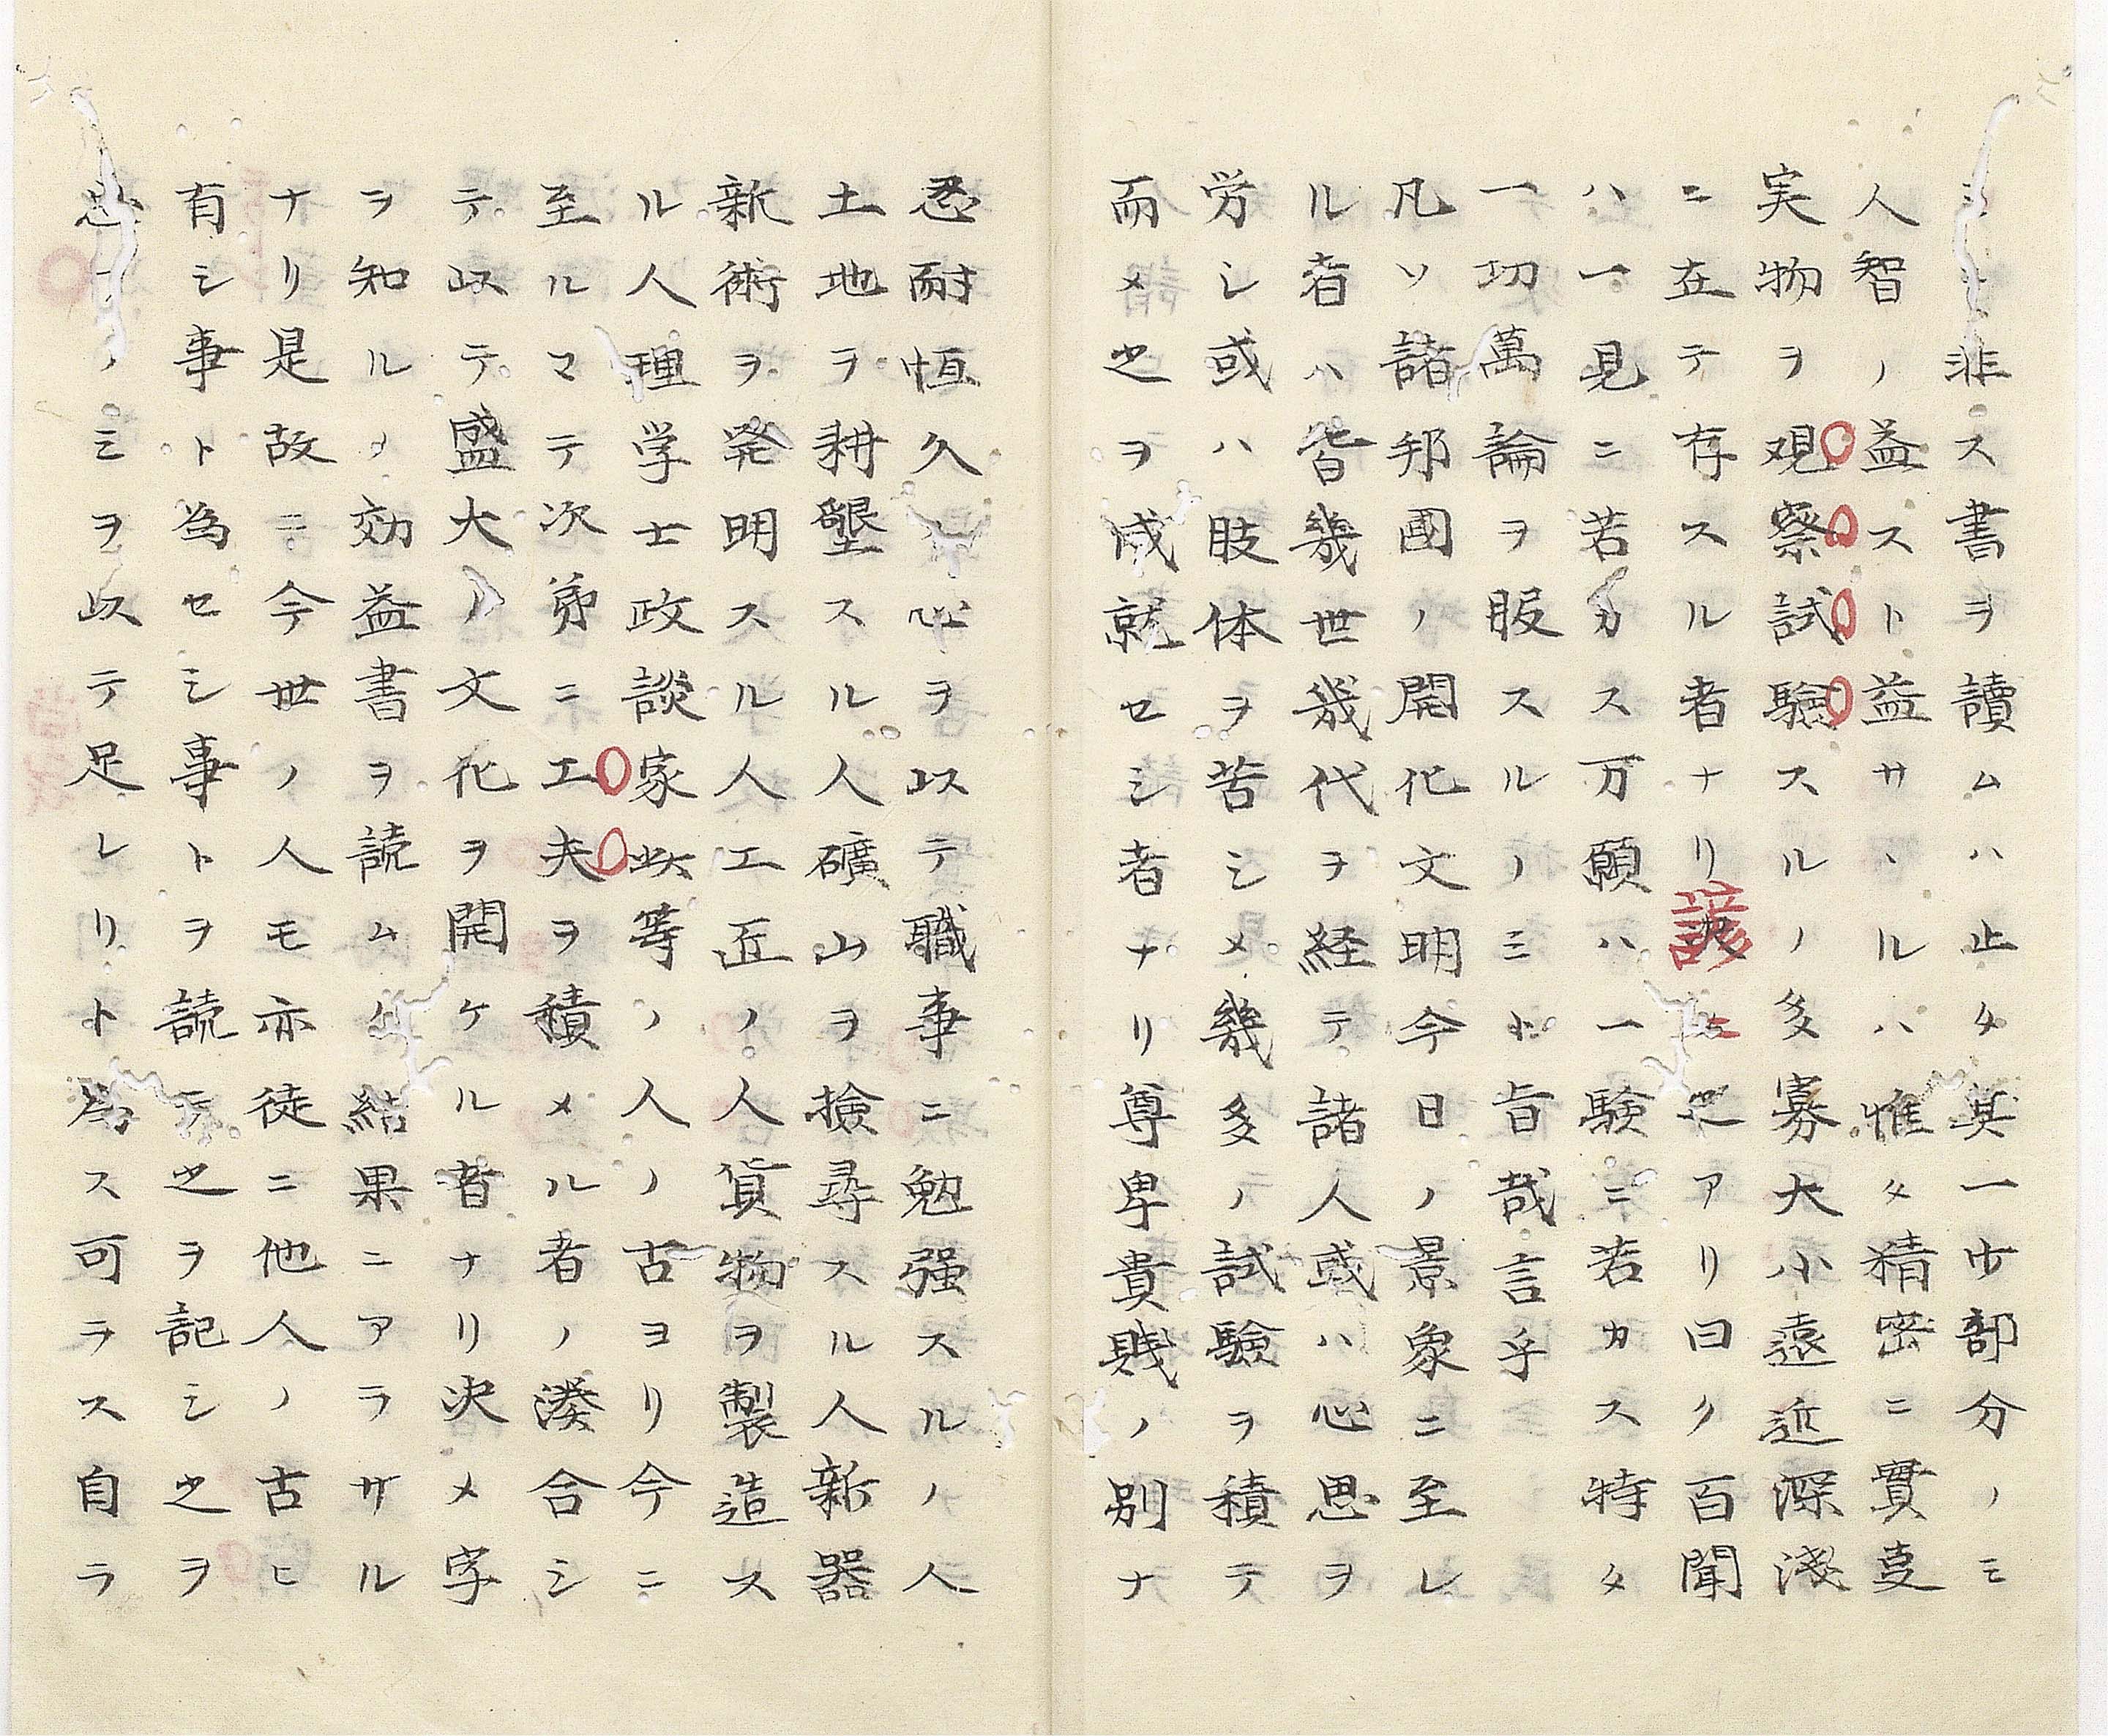 非ス書ヲ讀ムハ止タ其一少部分ノミ
人智ノ益スト益サヽルハ惟タ精密ニ實支
実物ヲ覌察試験スルノ多寡大小遠近深浅
ニ在テ存スル者ナリ諺ニ之アリ曰ク百聞
ハ一見ニ若カス万願ハ一験ニ若カス特タ
一切萬論ヲ服スルノミト旨哉言乎
凡ソ諸邦國ノ開化文明今日ノ景象ニ至レ
ル者ハ皆幾世幾代ヲ経テ諸人或ハ心思ヲ
労シ或ハ肢体ヲ苦シメ幾多ノ試験ヲ積テ
而メ之ヲ成就セシ者ナリ尊卑貴賎ノ別ナ
忍耐恒久ノ心ヲ以テ職事ニ勉强スルノ人
土地ヲ耕墾スル人礦山ヲ撿尋スル人新器
新術ヲ発明スル人工匠ノ人貨物ヲ製造ス
ル人理学士政談家此等ノ人ノ古ヨリ今ニ
至ルマテ次第ニ工夫ヲ積メル者ノ湊合シ
テ以テ盛大ノ文化ヲ開ケル者ナリ决メ字
ヲ知ルノ効益書ヲ読ムノ結果ニアラサル
ナリ是故ニ今世ノ人モ亦徒ニ他人ノ古ヒ
有シ事ト為セシ事トヲ読テ之ヲ記シ之ヲ
ノミヲ以テ足レリト為ス可ラス自ラ